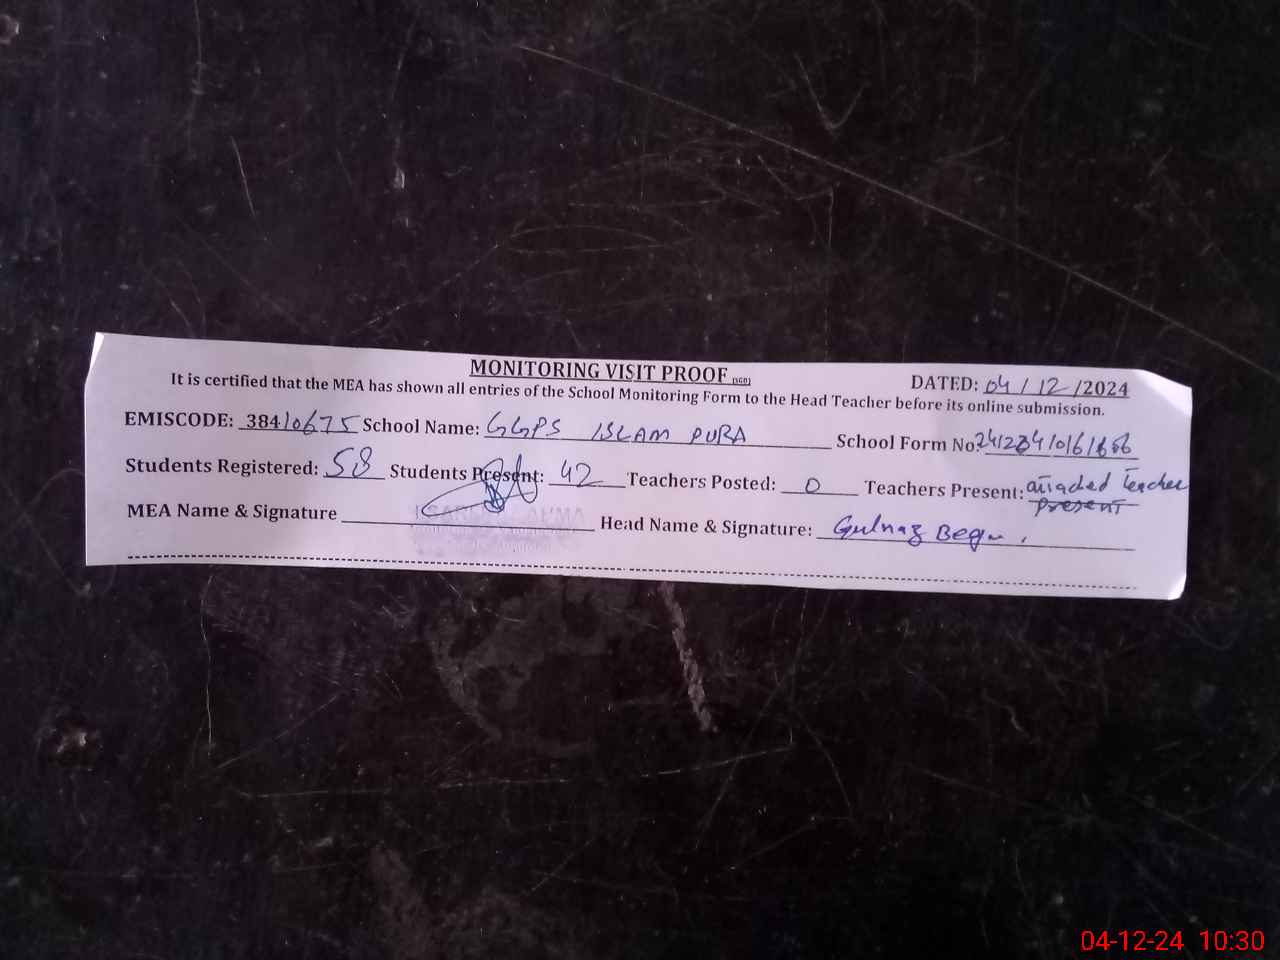 MONITORING VISIT PROOF (SGD)
DATED: 04 / 12 /2024
It is certified that the MEA has shown all entries of the School Monitoring Form to the Head Teacher before its online submission.
EMISCODE: 38410675 School Name: GGPS ISLAM PURA School Form No:
Students Registered: 58 Students Present: 42 Teachers Posted: 0 Teachers Present: attached Teacher
present
MEA Name & Signature Head Name & Signature: Gulnaz Begum.
04-12-24 10:30